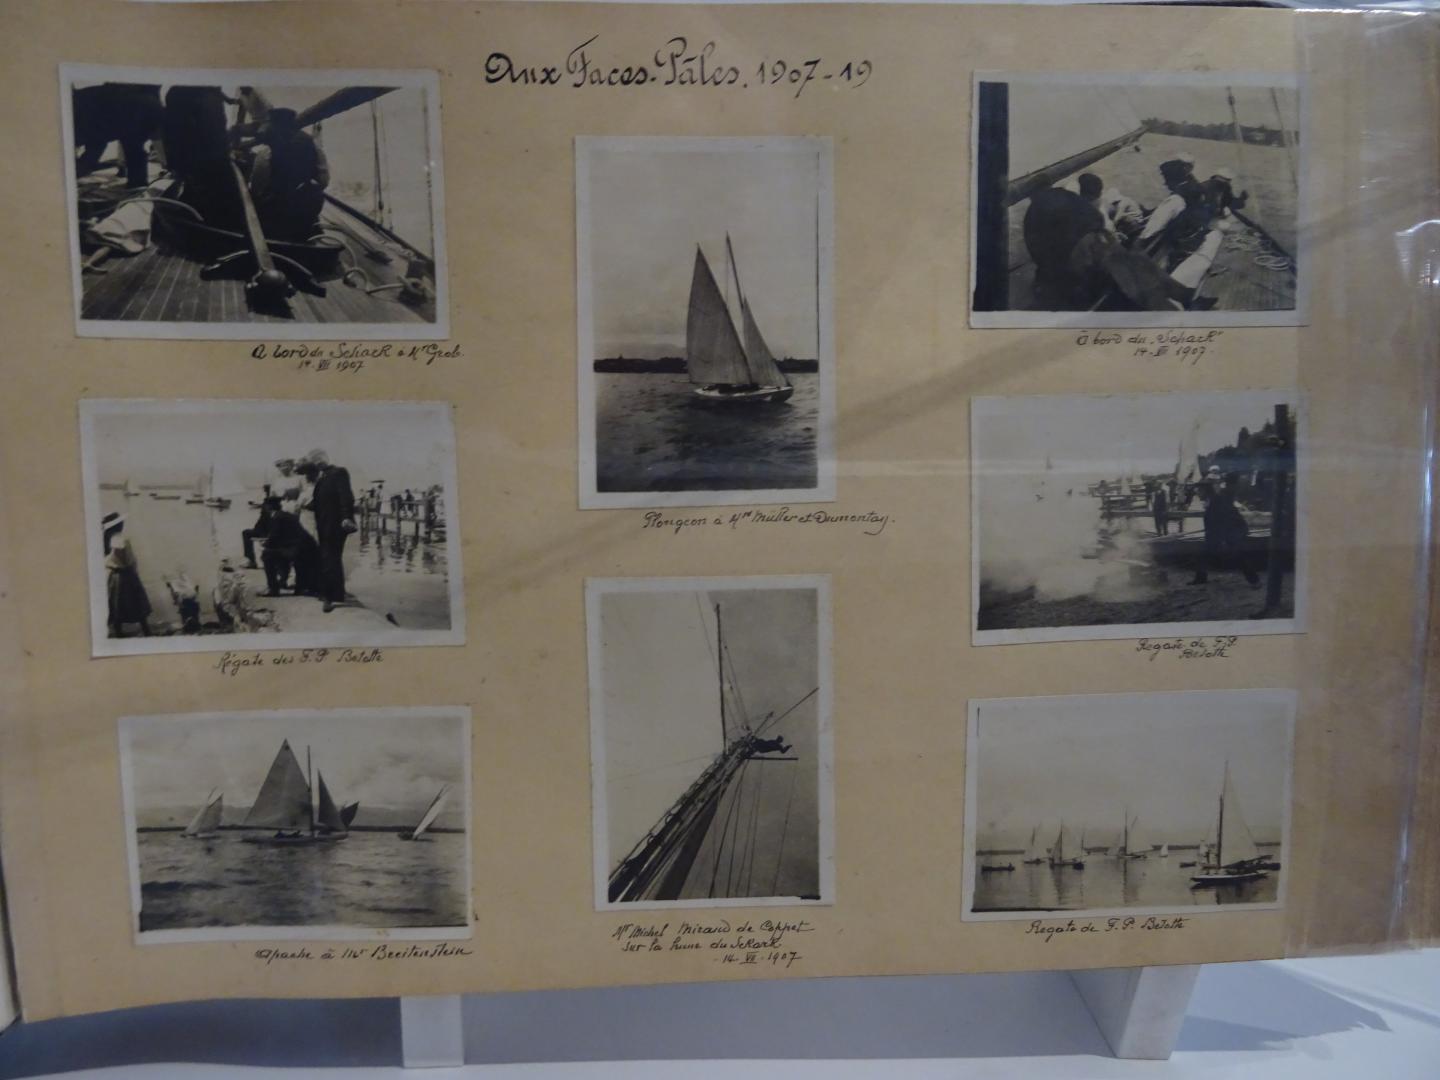 Aux Faces-Pâles. 1907-19
A bord du Schack à Mr Grob.
14. VII 1907
à bord du "Schack"
14. VII 1907.
Plongeon à Mrs Müller et Dumontay.
Régate des F.P. Belotte
Regate de F.P.
Belotte
Apache à Mr Breitenstein
Mr Michel Miraud de Coppet
sur la hune du Schack
- 14. VII. 1907
Regate de F.P. Belotte